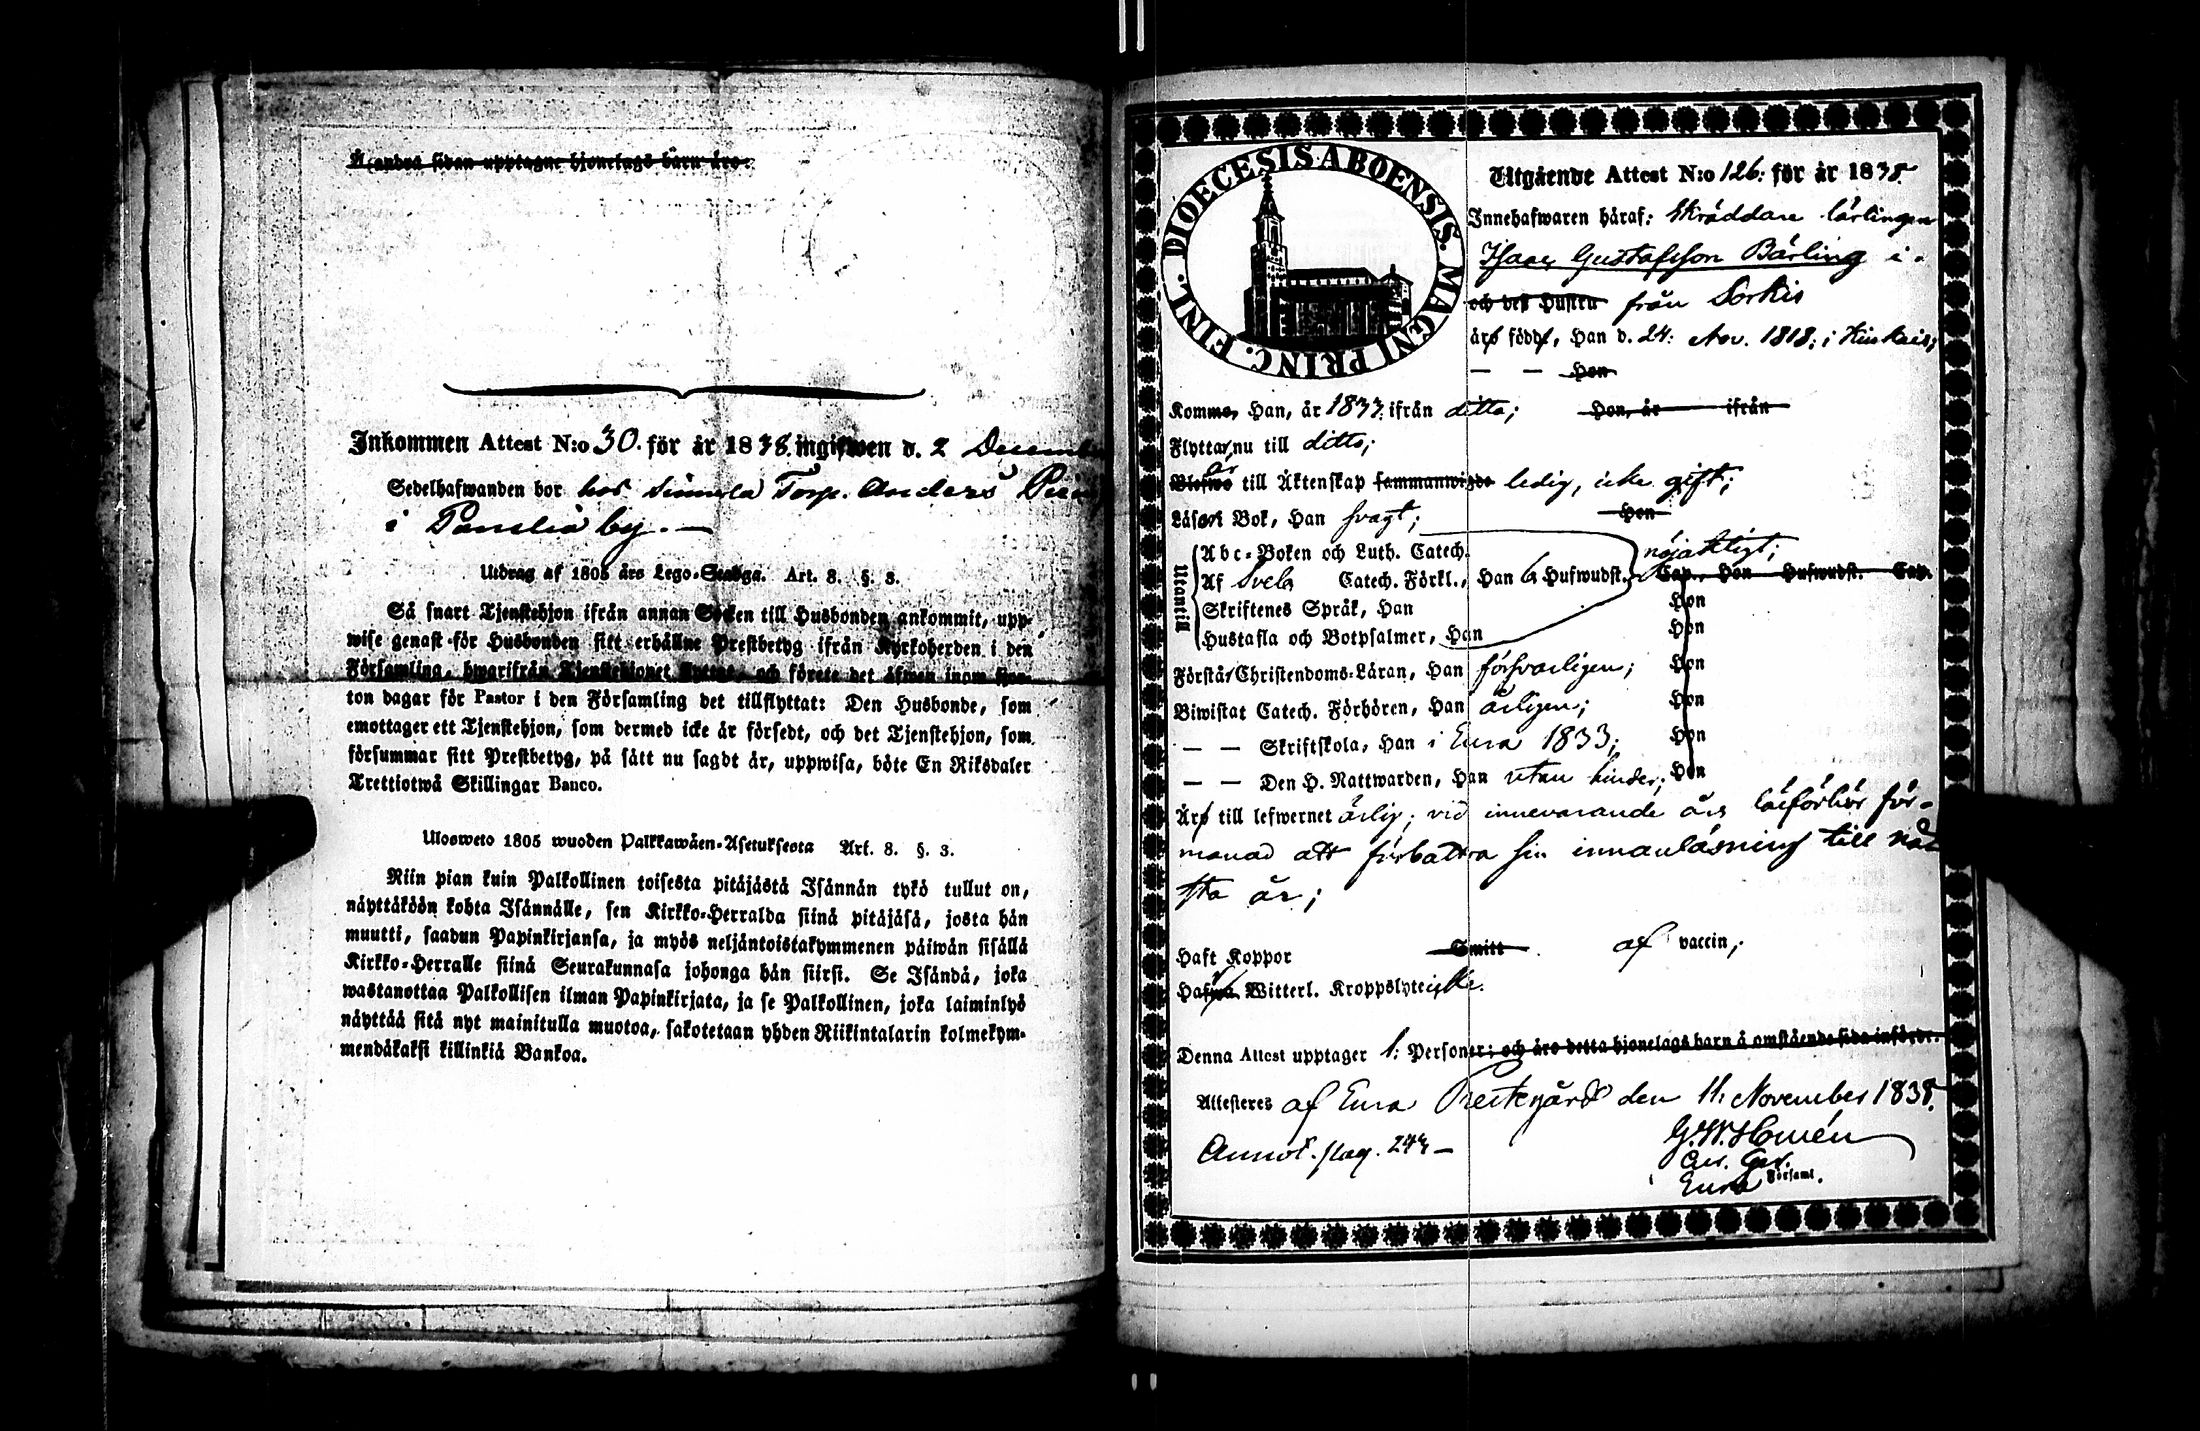 Å andra sidan upptagne hjonelags barn äro:
Inkommen Attest N:o 30. för år 1838. ingifwen d. 2 December
Sedelhafwanden bor hos Torp. Anders
i by. —
Utdrag af 1805 års Lego-Stadga. Art. 8. §. 3.
Så snart Tjenstehjon ifrån annan Socken till Husbonden ankommit, upp-
wise genast för Husbonden sitt erhållne Prestbetyg ifrån Kyrkoherden i den
Församling, hwarifrån Tjenstehjonet flyttat, och förete det äfwen inom fjor-
ton dagar för Pastor i den Församling det tillflyttat: Den Husbonde, som
emottager ett Tjenstehjon, som dermed icke är försedt, och det Tjenstehjon, som
försummar sitt Prestbetyg, på sätt nu sagdt är, uppwisa, böte En Riksdaler
Trettiotwå Skillingar Banco.
Ulosweto 1805 wuoden Palkkawäen-Asetuksesta Art. 8. §. 3.
Niin pian kuin Palkollinen toisesta pitäjästä Isännän tykö tullut on,
näyttäköön kohta Isännälle, sen Kirkko-Herralda siinä pitäjäsä, josta hän
muutti, saadun Papinkirjansa, ja myös neljäntoistakymmenen päiwän sisällä
Kirkko-Herralle siinä Seurakunnasa johonga hän siirsi. Se Isändä, joka
wastanottaa Palkollisen ilman Papinkirjata, ja se Palkollinen, joka laiminlyö
näyttää sitä nyt mainitulla muotoa, sakotetaan yhden Riikintalarin kolmekym-
mendäkaksi killinkiä Bankoa.
DIOECESIS ABOENSIS. MAGNI PRINC. FINL.
Utgående Attest N:o 126: för år 1838.
Innehafwaren häraf: Skräddare lärlingen
Isaac Gustafsson Bärling i.
och des Hustru från Sorkis
äro född, Han d. 24: Nov. 1818; i Hinkais;
— — Hon
Komme, Han, år 1833. ifrån ditto; Hon, år ifrån
Flyttar nu till ditto;
är
Blefwo till Äktenskap sammanwigde ledig, icke gift;
Läser i Bok, Han svagt; Hon
Utantill
Abc-Boken och Luth. Catech. nöjaktigt;
Af Sveb. Catech. Förkl., Han 6 Hufwudst. Cap., Hon Hufwudst. Cap.
Skriftenes Språk, Han Hon
Hustafla och Botpsalmer, Han Hon
Förstår Christendoms-Läran, Han försvarligen; Hon
Biwistat Catech. Förhören, Han årligen; Hon
— — Skriftskola, Han i Eura 1833; Hon
— — Den H. Nattwarden, Han utan hinder; Hon
Äro till lefwernet ärlig; vid innevarande års läsförhör för-
manad att förbättra sin innanläsning till näs-
sta år;
Haft Koppor Smitt af vaccin;
Hafwa Witterl. Kroppslyte icke.
Denna Attest upptager 1: Personer; och äro detta hjonelags barn å omstående sida införde.
Attesteres af Eura Prestegård den 11. November 1838.
Annot. pag. 243 —
G. W. Homén
Församl.
Eura